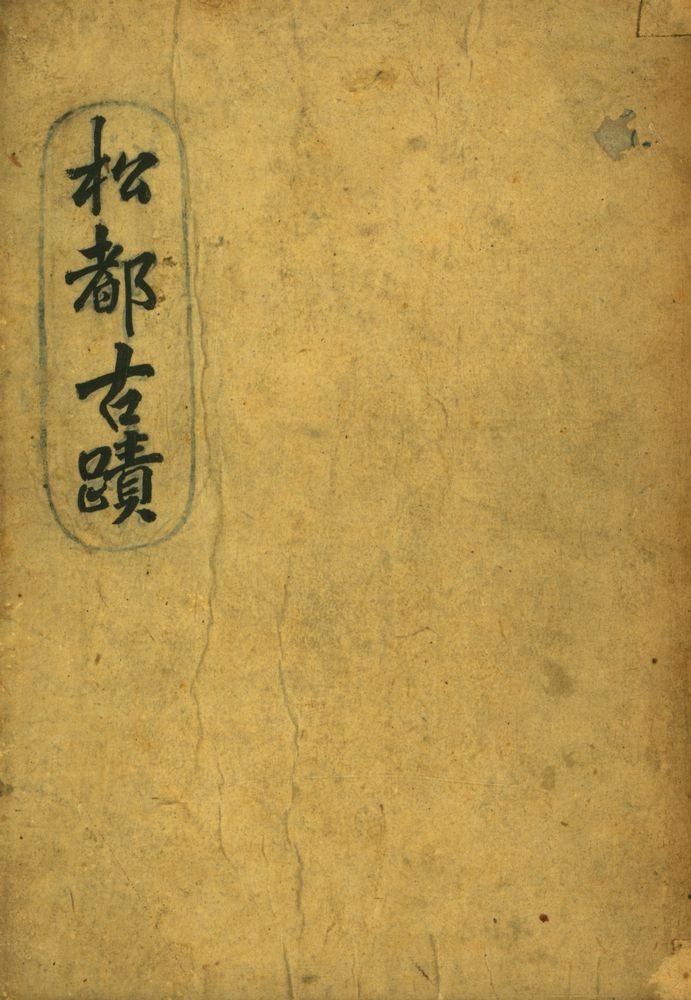 松都古蹟